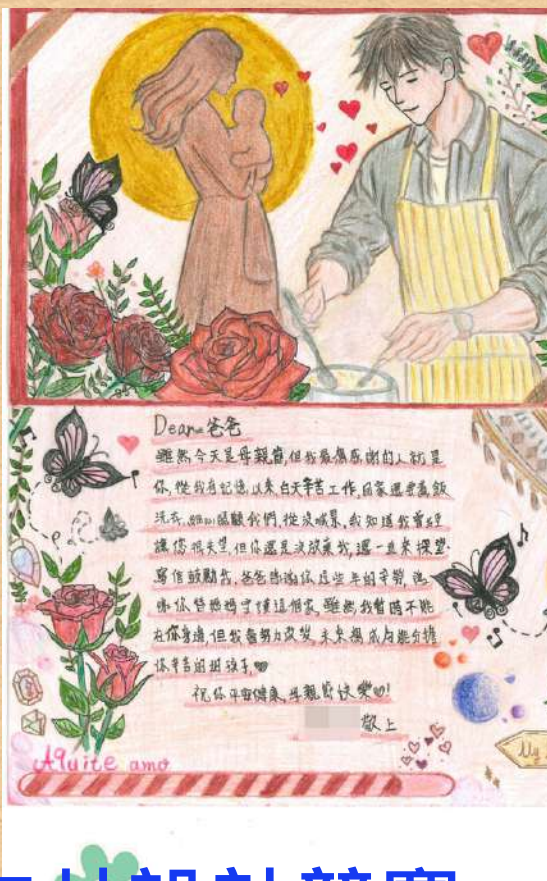 Dear 爸爸
雖然今天是母親節,但我最為感謝的人就是
你,從我有記憶以來,白天辛苦工作,回家還要煮飯
洗衣,細心照顧我們,從沒喊累,我知道我曾經
讓你很失望,但你還是沒放棄我,還一直來探望、
寫信鼓勵我,爸爸謝謝你這些年的辛勞,
你替媽媽守護這個家,雖然我暫時不能
在你身邊,但我會努力改變,未來換成能分擔
你辛苦的
祝你平安健康,母親節快樂!
敬上
Aquite amo
My
設計競賽